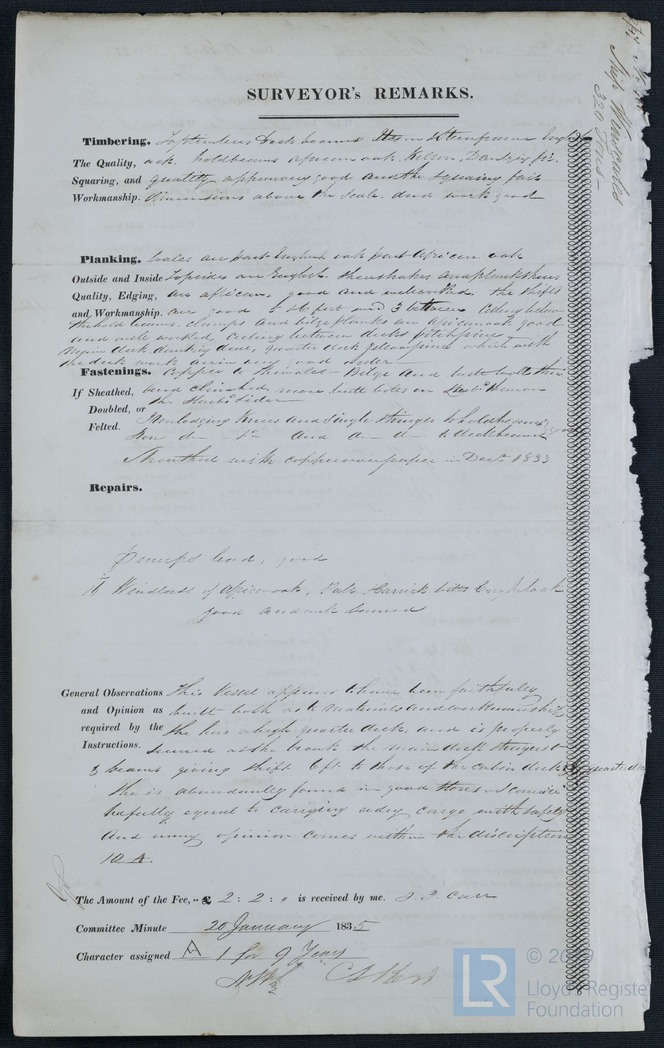 SURVEYOR's REMARKS.
Ship
320 Tons
Timbering. deck beams Stem & Sternpost English
The Quality, oak. hold beams African oak, Kelson, Dantzig fir.
Squaring, and quality appearing good and the squaring fair
Workmanship. dimensions above the scale. and work good
Planking. Wales are part English oak part African oak
Outside and Inside Topsides are English. Sheerstrakes and plank sheers
Quality, Edging, are African, good and well worked. the shifts
and Workmanship. are good 5 to 6 feet and 3 between Ceiling below
the hold beams. clamps and bilge planks are African oak good
and well worked, Ceiling between decks pitch pine
Main deck quarter deck yellow pine which with
the deck work are in good order
Fastenings. Copper to the wales - Bilge and butt bolts thro
If Sheathed, and clinched, some butt bolts on
Doubled, or the Starbd Side
Felted. Iron lodging knees and single stringer to hold beams
Iron do do and a do to deck beams good
Sheathed with copper over paper in Decr 1833
Repairs.
Pumps lead, good
A Windlass of African oak, Pale Carrick bitts
good and well secured
General Observations This Vessel appears to have been faithfully
and Opinion as built both as to materials and workmanship
required by the She has a high quarter deck and is properly
Instructions. secured at the break the main deck stringers &
3 beams giving shift 6 ft to those of the cabin deck & quarter dk
She is abundantly found in good stores & I consider
her fully equal to carrying a dry cargo with safety
And in my opinion comes within the discription
10 A.
The Amount of the Fee,.. £ 2 : 2 : " is received by me.
Committee Minute 20 January 1835
Character assigned A 1 for 9 Years
LR
© 2019
Lloyd's Register
Foundation